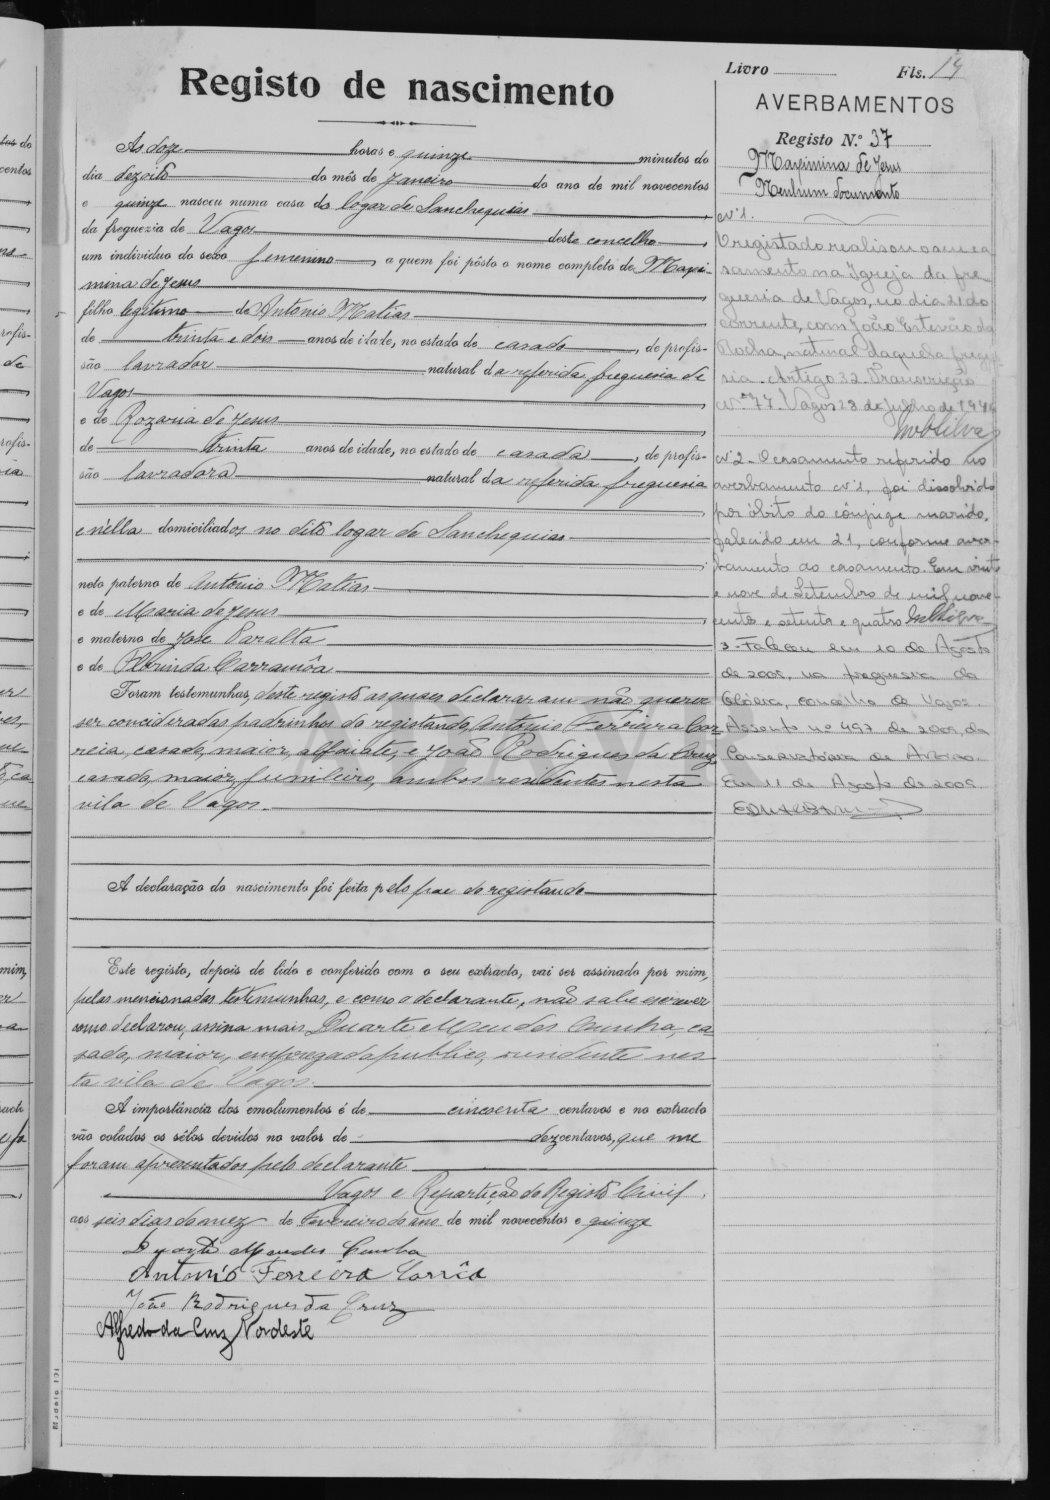 Registo de nascimento
As doze horas e quinze minutos do
dia dezoito do mês de Janeiro do ano de mil novecentos
e quinze nasceu numa casa do logar de Sanchequias
da freguezia de Vagos deste concelho,
um individuo do sexo femenino, a quem foi pôsto o nome completo de Maxi-
mina de Jesus
filho legitimo de Antonio Matias
de trinta e dois anos de idade, no estado de casado, de profis-
são lavrador natural da referida freguesia de
Vagos
e de Rozaria de Jesus
de trinta anos de idade, no estado de casada, de profis-
são lavradora natural da referida freguesia
e n'ella domiciliados no dito logar de Sanchequias
neto paterno de Antonio Matias
e de Maria de Jesus
e materno de José Paralta
e de Florinda Carramôa
Foram testemunhas, deste registo as quaes declararam não querer
ser concideradas padrinhos da registanda, Antonio Ferreira Cor
reia, casado, maior, alfaiate, e João Rodrigues da Cruz,
casado, maior, funileiro, ambos residentes nesta
vila de Vagos.
A declaração do nascimento foi feita pelo pae do registando
Este registo, depois de lido e conferido com o seu extracto, vai ser assinado por mim,
pelas mencionadas testemunhas, e como o declarante, não sabe escrever
como declarou, assina mais Duarte Mendes Cunha, ca
sado, maior, empregado publico, rendente nes
ta vila de Vagos.
A importância dos emolumentos é de cincoenta centavos e no extracto
vão colados os sêlos devidos no valor de dez centavos, que me
foram apresentados pelo declarante.
Vagos e Repartição do Registo Civil,
aos seis dias do mez de Fevereiro do ano de mil novecentos e quinze
Duarte Mendes Cunha
Antonio Ferreira Corrêa
João Rodrigues da Cruz
Alfredo da Cruz Nordeste
Livro Fls. 19
AVERBAMENTOS
Registo N.º 37
Maximina de Jesus
Nenhum documento
Nº1.
O registado realisou o seu ca
samento na Igreja da fre
guesia de Vagos, no dia 21 do
corrente, com João Estevão da
Rocha, natural daquela fregue
sia. Artigo 32. Transcrição
Nº 77. Vagos 28 de Julho de 194
Nº2 - O casamento referido no
averbamento Nº1, foi dissolvido
por óbito do cônjuge marido,
falecido em 21, conforme aver-
bamento ao casamento. Em vinte
e nove de Setembro de mil nove-
centos e setenta e quatro
3 - Faleceu em 10 de Agosto
de 2005, na freguesia da
Glória, concelho de
Assento nº 497 de 2005, da
Conservatória de
Em 11 de Agosto de 2005.